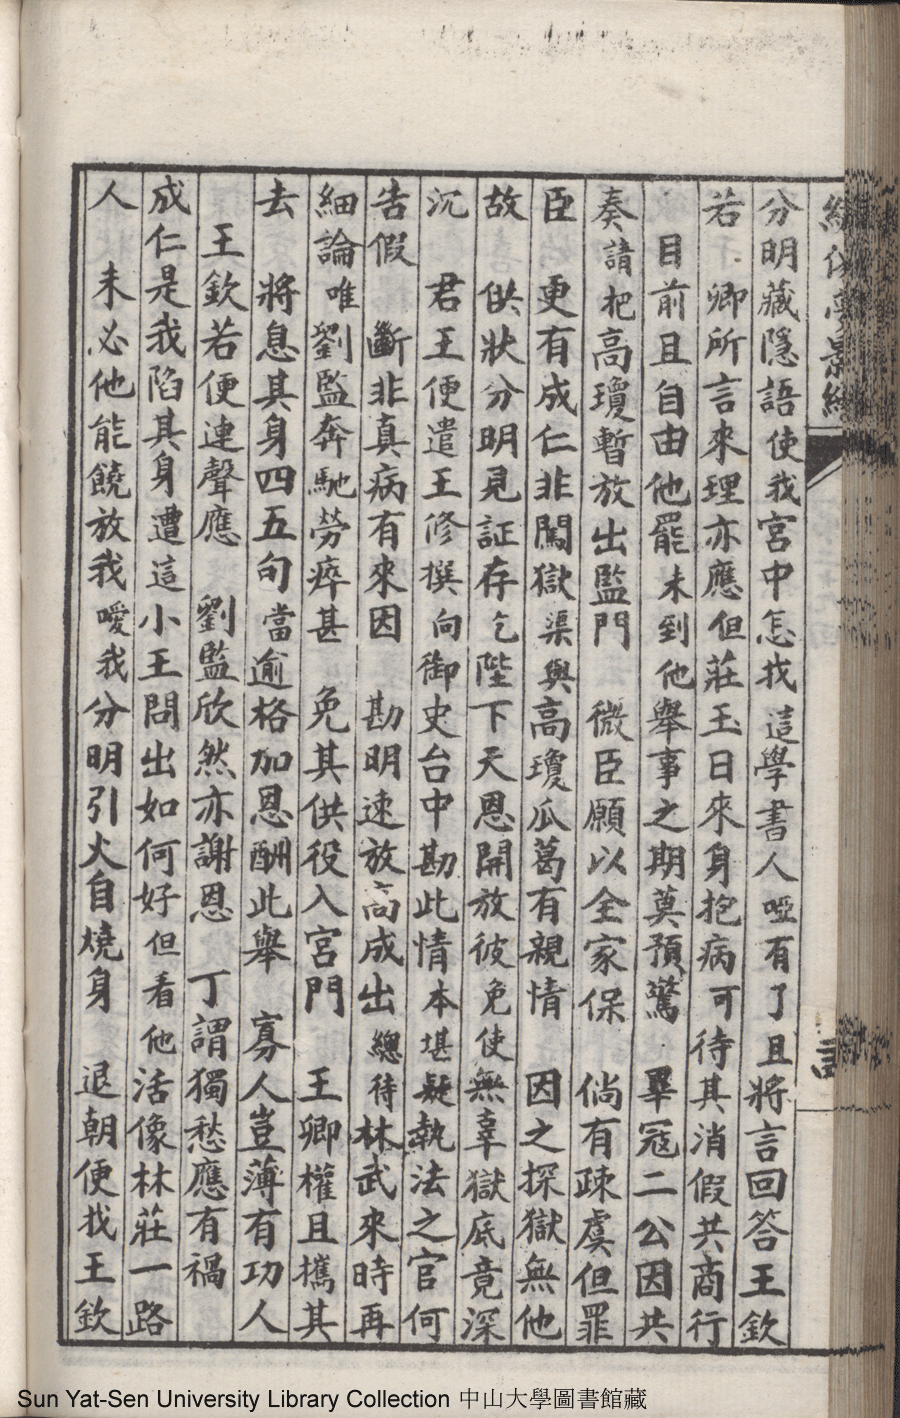 分明藏隱語使我宮中怎找　這學書人啞有了且將言回答王欽
若　卿所言來理亦應但莊玉日來身抱病可待其消假共商行
目前且自由他罷未到他舉事之期莫預驚　畢冦二公因共
奏請把高瓊暫放出監門　微臣願以全家保　倘有疎虞但罪
臣　更有成仁非闖獄渠與高瓊瓜葛有親情　因之探獄無他
故　供狀分明見証存乞陛下天恩開放彼免使無辜獄底竟深
沉　君王便遣王修撰向御史台中勘此情本堪疑執法之官何
告假　斷非真病有來因　勘明速放高成出總待林武來時再
細論唯劉監奔馳勞瘁甚　免其供役入宮門　王卿權且攜其
去　將息其身四五旬當逾格加恩酬此舉　寡人豈薄有功人
王欽若便連聲應　劉監欣然亦謝恩　丁謂獨愁應有禍
成仁是我陷其身遭這小王問出如何好但看他活像林莊一路
人　未必他能饒放我噯我分明引火自燒身　退朝便找王欽
Sun Yat-Sen University Library Collection 中山大學圖書館藏